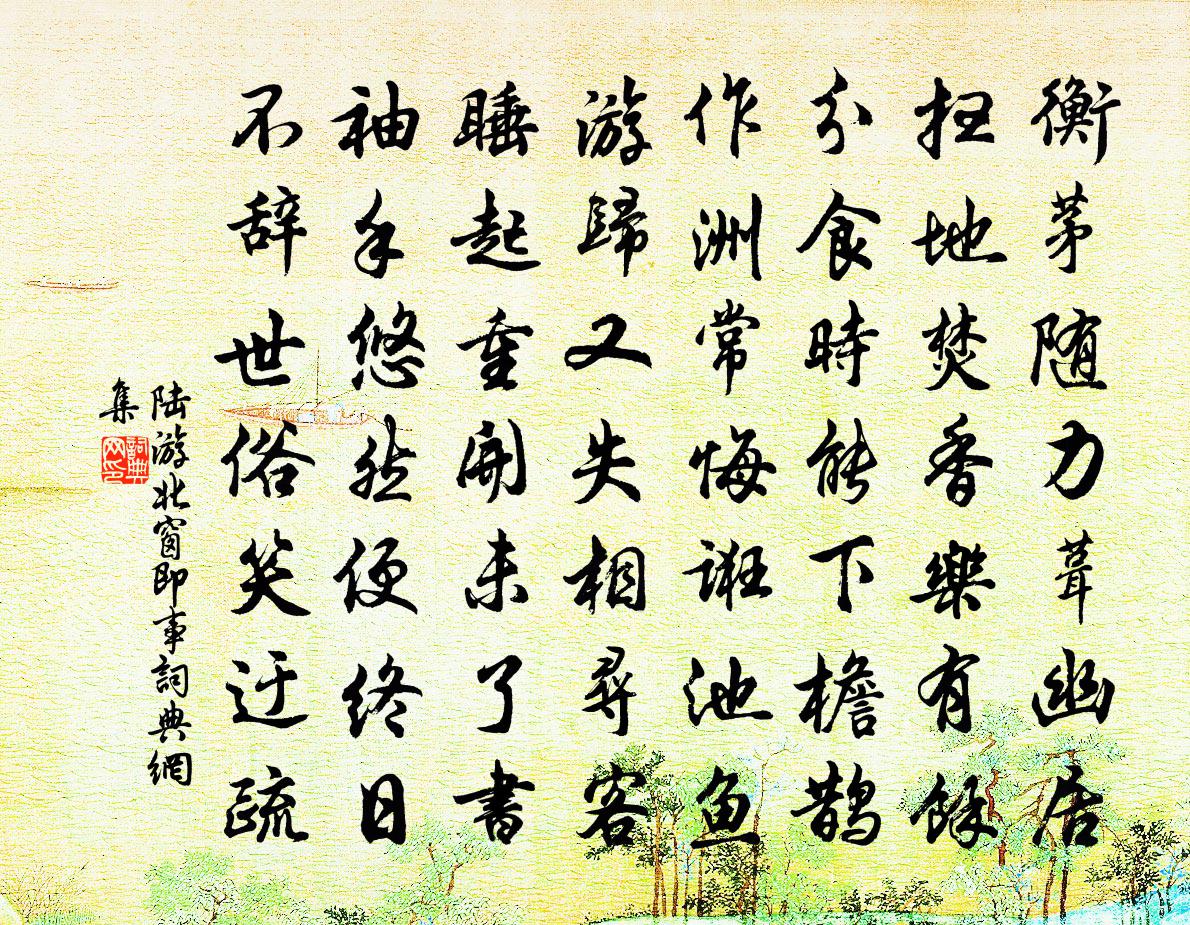 衡茅随力葺幽居
扫地焚香樂有餘
分食時能下檐鹊
作洲常悔誑池鱼
游歸又失相尋客
睡起重開未了書
袖手悠然便终日
不辞世俗笑迂疏
陆游北窗即事詞典網
集
詞典网印